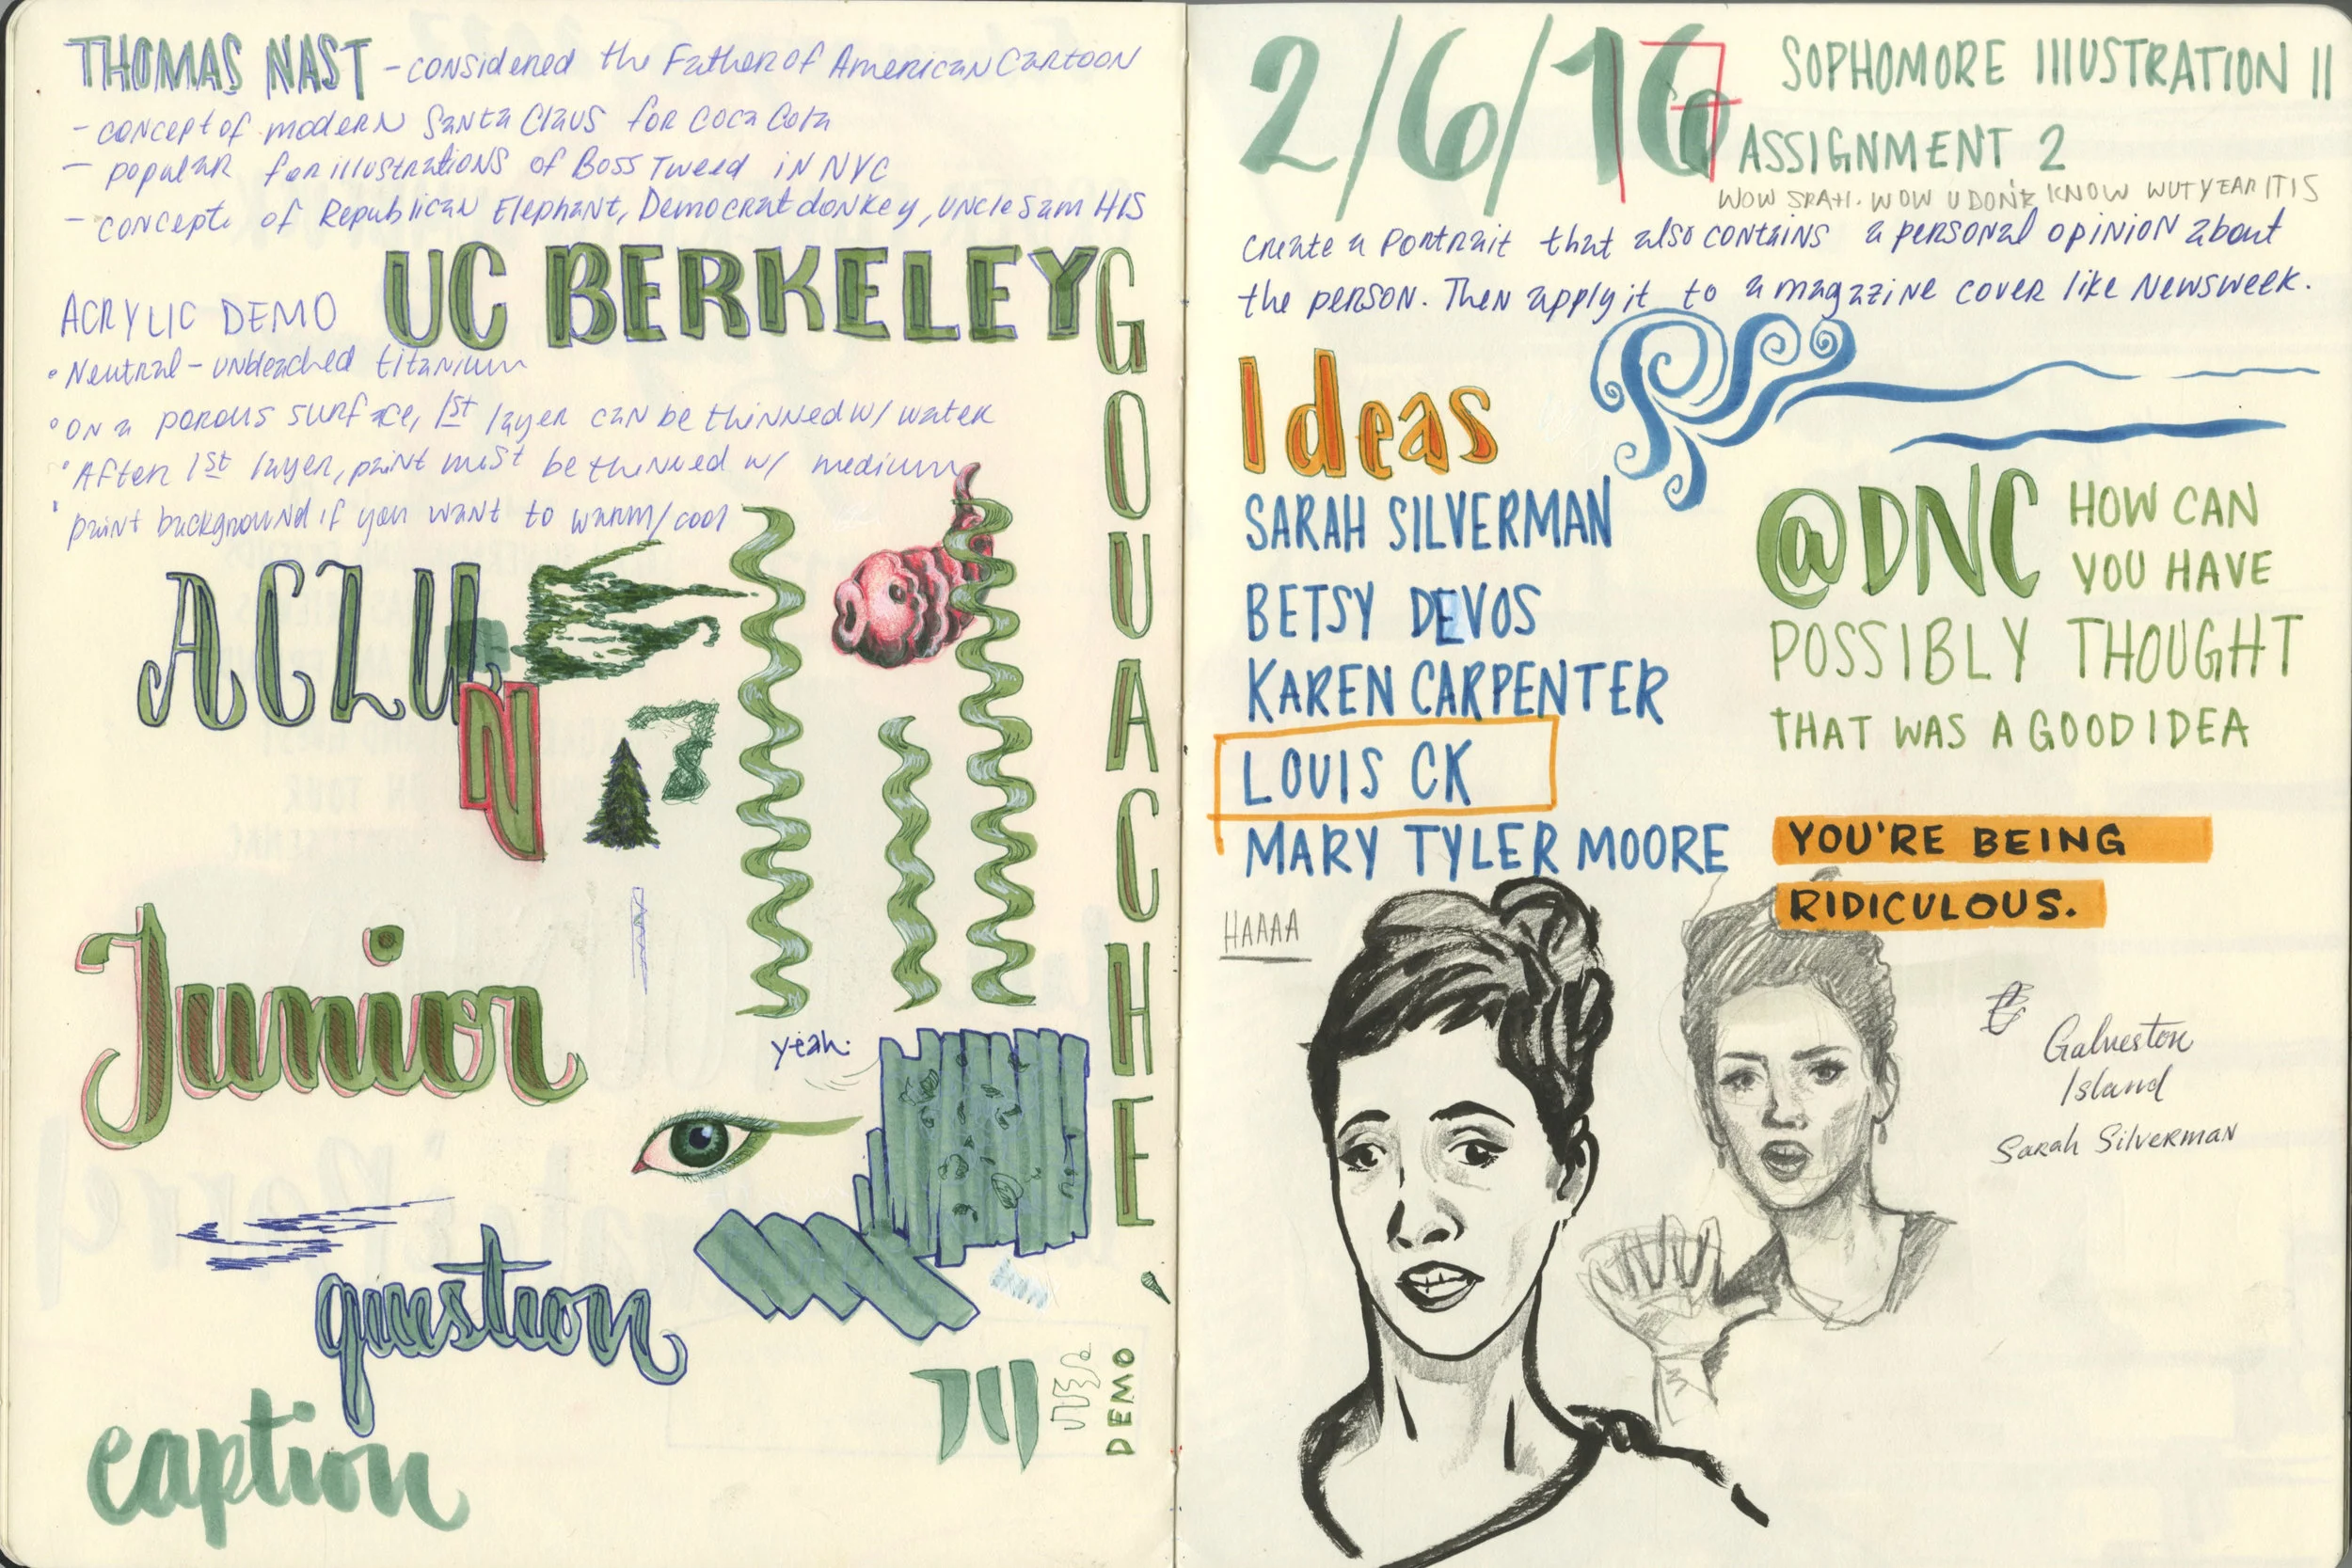 THOMAS NAST - considered the Father of American Cartoon
- concept of modern Santa Claus for Coca Cola
- popular for illustrations of Boss Tweed in NYC
- concepts of Republican Elephant, Democrat donkey, Uncle Sam HIS
UC BERKELEY
ACRYLIC DEMO
• Neutral - unbleached titanium
• On a porous surface, 1st layer can be thinned w/ water
• After 1st layer, paint must be thinned w/ medium
• paint background if you want to warm/cool
GOUACHE
ACLU
N
7
Junior
yeah.
question
caption
DEMO
2/6/16
7
SOPHOMORE IllUSTRATION II
ASSIGNMENT 2
WOW SRAH. WOW U DON'T KNOW WUT YEAR IT IS
Create a portrait that also contains a personal opinion about
the person. Then apply it to a magazine cover like Newsweek.
Ideas
SARAH SILVERMAN
BETSY DEVOS
KAREN CARPENTER
LOUIS CK
MARY TYLER MOORE
@DNC HOW CAN
YOU HAVE
POSSIBLY THOUGHT
THAT WAS A GOOD IDEA
YOU'RE BEING
RIDICULOUS.
HAAAA
Galveston
Island
Sarah Silverman